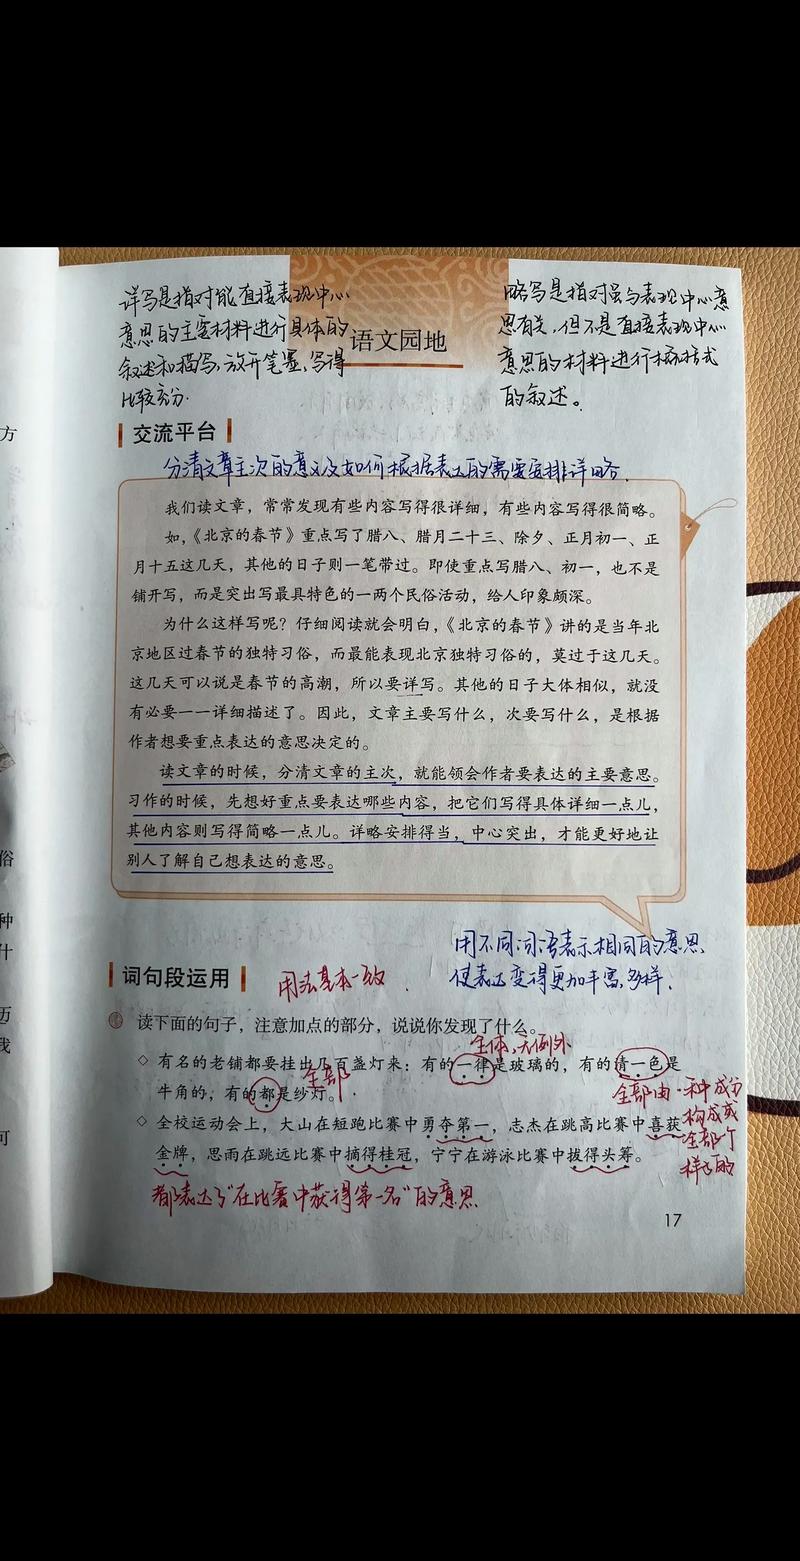 详写是指对能直接表现中心
意思的主要材料进行具体的
叙述和描写,放开笔墨,写得
比较充分.
略写是指对虽与表现中心意
思有关,但不是直接表现中心
意思的材料进行概括式
的叙述。
语文园地
交流平台
分清文章主次的意义及如何根据表达的需要安排详略.
我们读文章,常常发现有些内容写得很详细,有些内容写得很简略。
如,《北京的春节》重点写了腊八、腊月二十三、除夕、正月初一、正
月十五这几天,其他的日子则一笔带过。即使重点写腊八、初一,也不是
铺开写,而是突出写最具特色的一两个民俗活动,给人印象颇深。
为什么这样写呢?仔细阅读就会明白,《北京的春节》讲的是当年北
京地区过春节的独特习俗,而最能表现北京独特习俗的,莫过于这几天。
这几天可以说是春节的高潮,所以要详写。其他的日子大体相似,就没
有必要一一详细描述了。因此,文章主要写什么,次要写什么,是根据
作者想要重点表达的意思决定的。
读文章的时候,分清文章的主次,就能领会作者要表达的主要意思。
习作的时候,先想好重点要表达哪些内容,把它们写得具体详细一点儿,
其他内容则写得简略一点儿。详略安排得当,中心突出,才能更好地让
别人了解自己想表达的意思。
用不同词语表示相同的意思
使表达变得更加丰富,多样.
词句段运用
用法基本一致.
读下面的句子,注意加点的部分,说说你发现了什么。
全体,无例外
◇ 有名的老铺都要挂出几百盏灯来:有的一律是玻璃的,有的清一色是
全部
牛角的,有的都是纱灯。
全部由一种成分
构成或
全部一个
样子的
◇ 全校运动会上,大山在短跑比赛中勇夺第一,志杰在跳高比赛中喜获
金牌,思雨在跳远比赛中摘得桂冠,宁宁在游泳比赛中拔得头筹。
都表达了“在比赛中获得第一名”的意思
17
方
俗
种
什
历
我
可